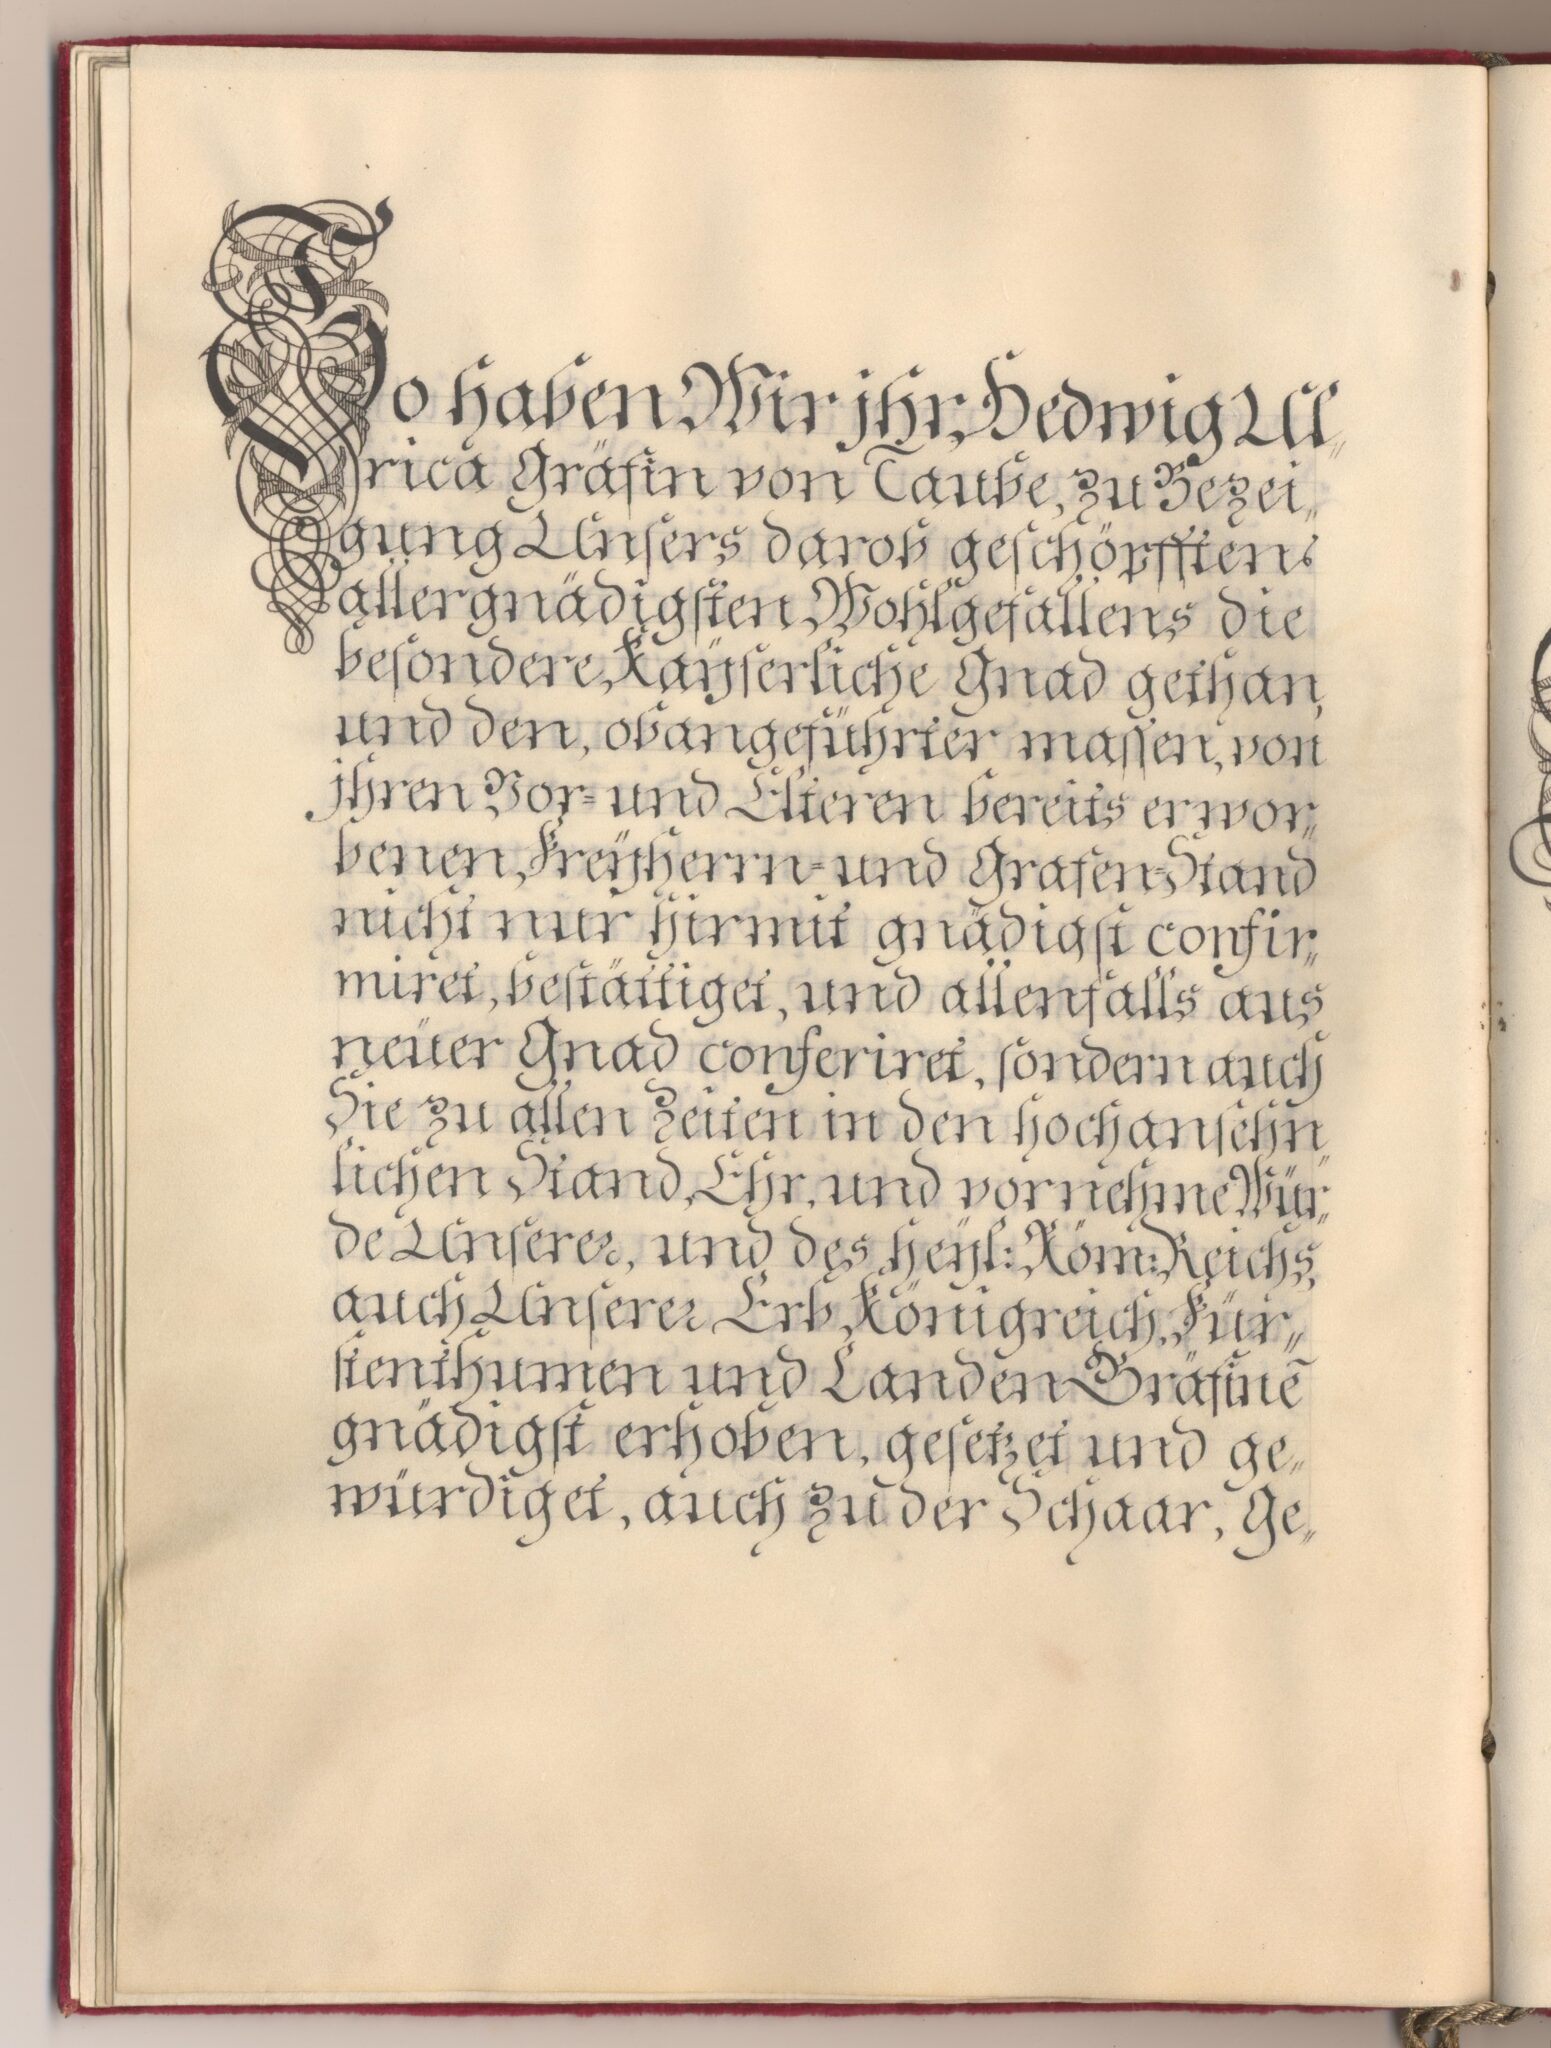 So haben Wir jhr, Hedwig Ul„
rica Gräfin von Taube, zu Bezei„
gung Unsers darob geschöpfften
allergnädigsten Wohlgefallens die
besondere Kaÿserliche Gnad gethan,
und den, obangeführter massen, von
jhren Vor= und Elteren bereits erwor„
benen Freÿherrn= und Grafen=Stand
nicht nur hirmit gnädigst confir„
miret, bestättiget, und allenfalls aus
neüer Gnad conferiret, sondern auch
Sie zu allen Zeiten in den hochansehn„
lichen Stand, Ehr, und vornehme Wür„
de Unserer, und des Heÿl: Röm: Reichs,
auch Unserer Erb Königreich, Für„
stenthumen und Landen Gräfinē
gnädigst erhoben, gesetzet und ge„
würdiget, auch zu der Schaar, Ge„